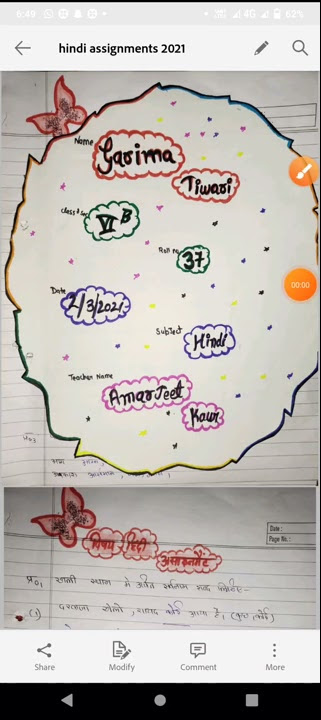 6:49
4G 62%
hindi assignments 2021
Name
Garima
Tiwari
Class & Sec
VI B
Roll No
37
00:00
Date
2/3/2021
Subject
Hindi
Teacher Name
Amarjeet
Kaur
Date :
Page No. :
विषय हिंदी
असाइनमेंट
प्र०1 खाली स्थान में उचित सर्वनाम शब्द
(1) दरवाजा खोलो, शायद कोई आया है। (कुछ/कोई)
Share
Modify
Comment
More